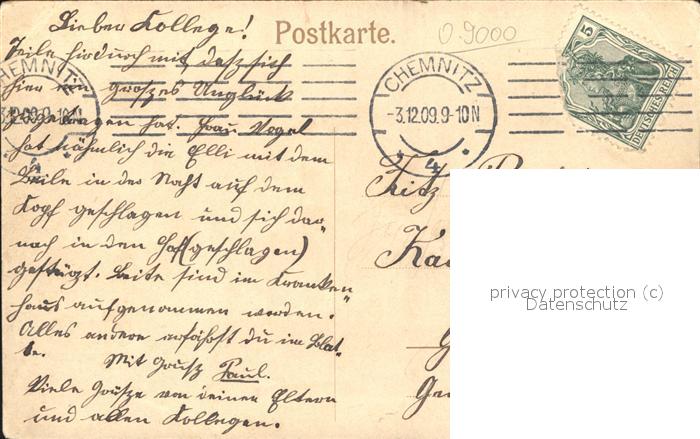 Postkarte.
0.9000
Lieber Kollege!
Teile hirduch mit dasz sich
hier ein groszes Unglück
zugetragen hat. Frau Vogel
hat nähmlich die Elli mit dem
Beile in der Naht auf dem
Kopf geschlagen und sich dar„
nach in den Hof (geschlagen)
gestürzt. Beite sind im Kranken„
haus aufgenommen worden.
Alles andere erfährst du im Blat-
te. Mit Grusz Paul.
Viele Grüsze von deinen Eltern
und allen Kollegen.
CHEMNITZ
-3.12.09.9-10N
* 4 *
CHEMNITZ
3.12.09.9-10N
5
DEUTSCHES REICH
Fritz
privacy protection (c)
Datenschutz